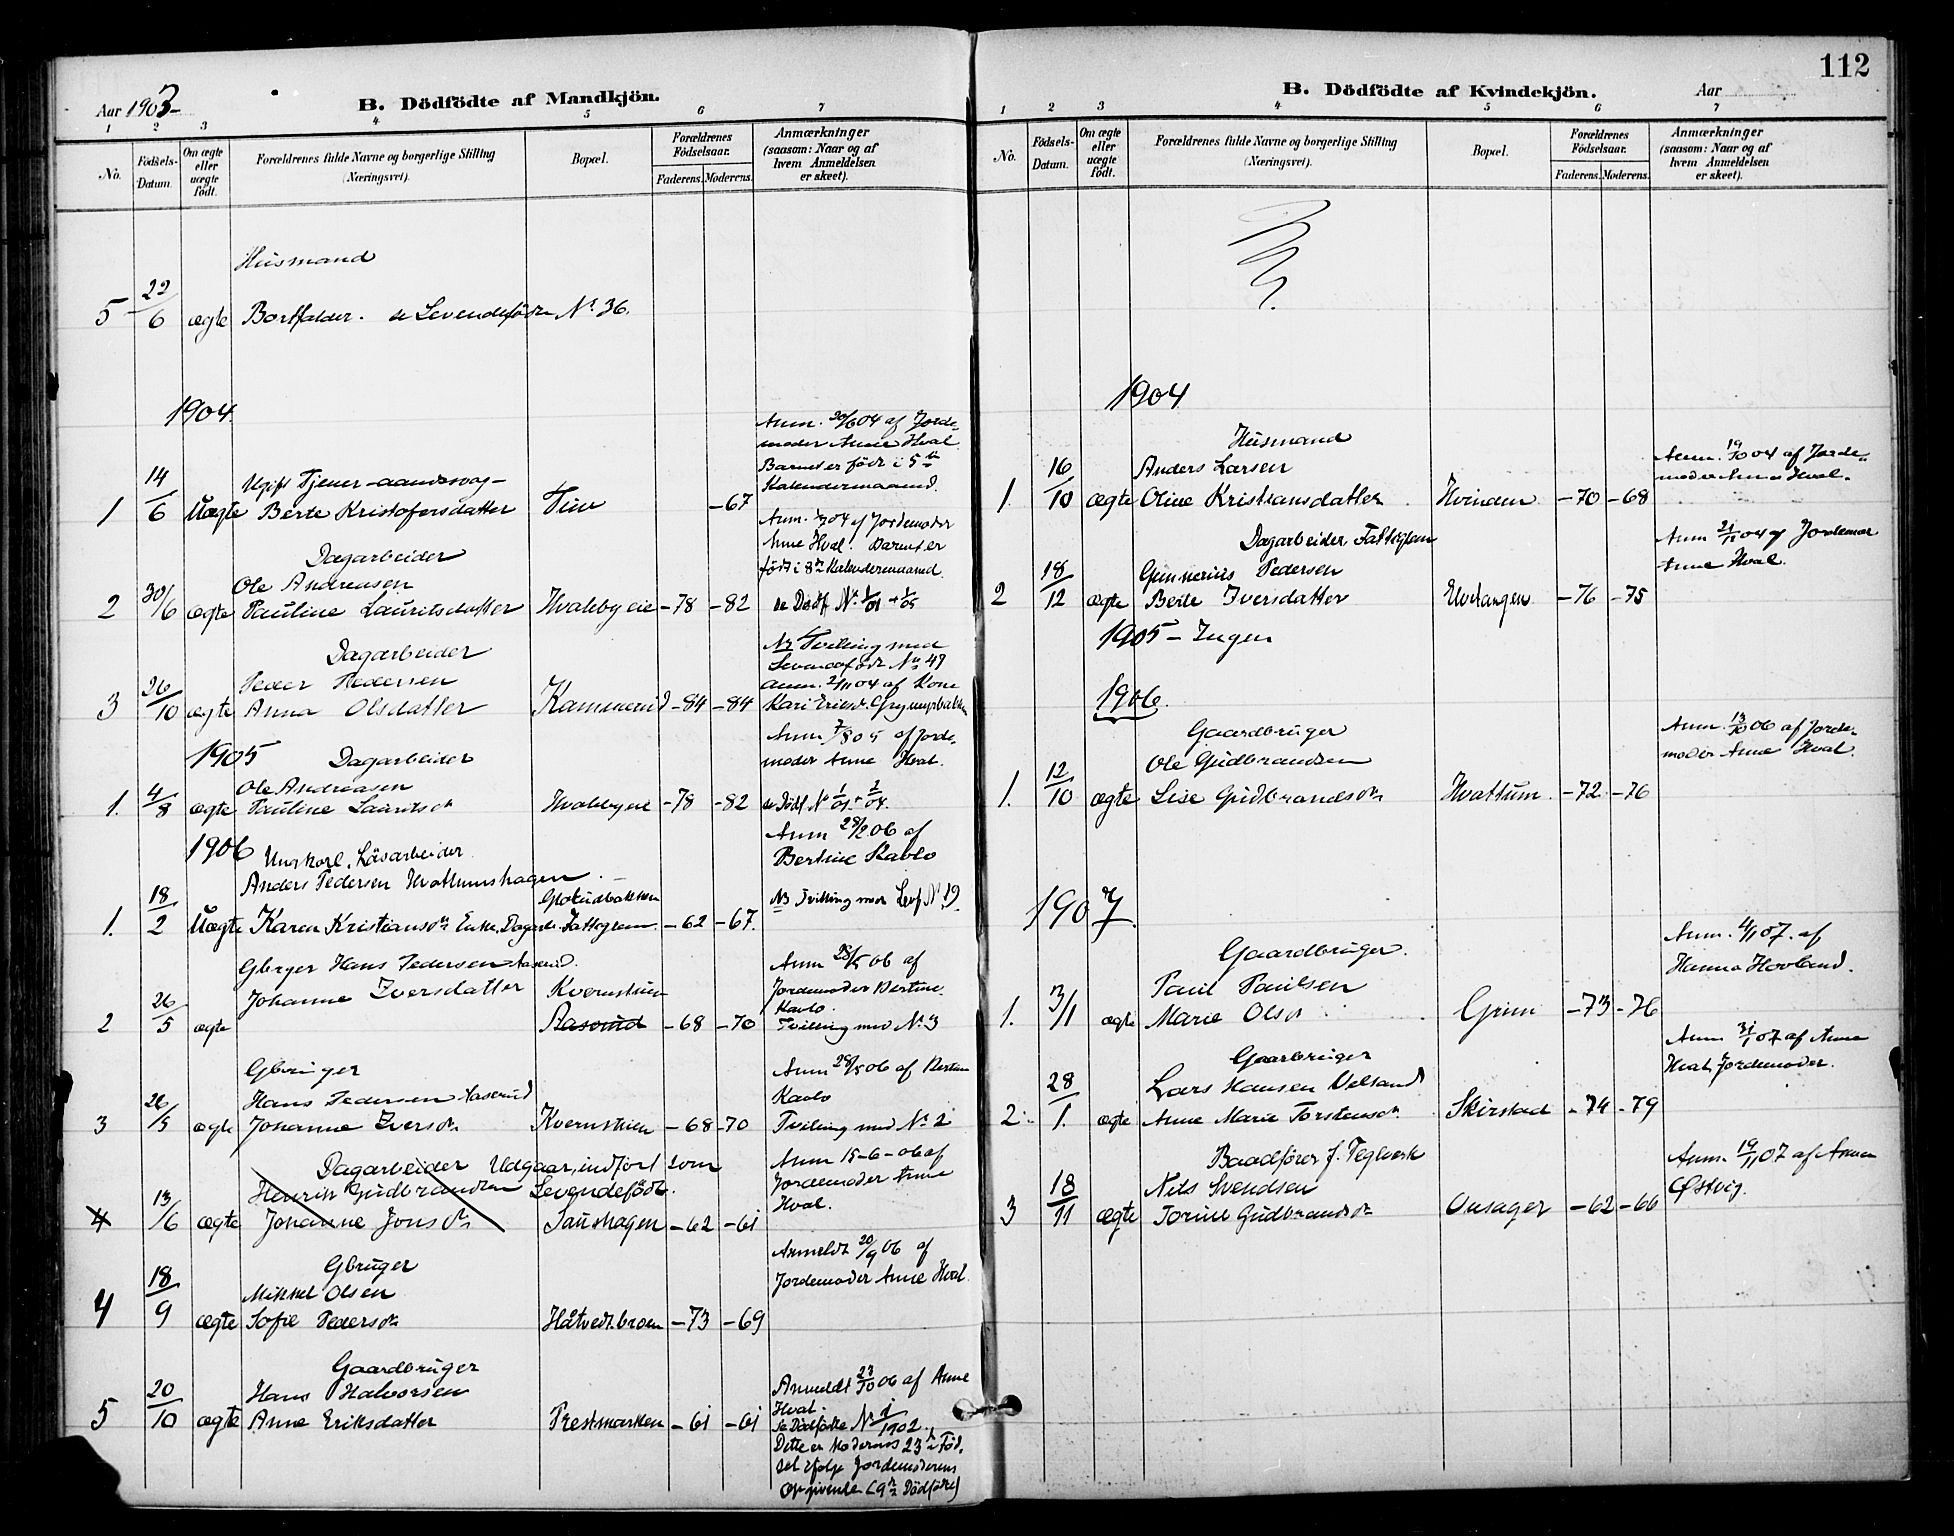 Aar 1903 B. Dödfödte af Mandkjön.
1 2 3 4 5 6 7
No.
Födsels-Datum.
Om ægte eller uægte födt.
Forældrenes fulde Navne og borgerlige Stilling (Næringsvei).
Bopæl.
Forældrenes Födselsaar.
Faderens. Moderens.
Anmærkninger (saasom: Naar og af hvem Anmeldelsen er skeet).
Husmand
5 22/6 ægte Bortfalder. se Levendefødte No. 36.
1904
Anm. 20/6 04 af Jorde-
moder Anne Hval.
Barnet er født i 5te
Kalendermaaned.
Ugift Tjener - aandssvag -
1 14/6 Uægte Berte Kristofersdatter -67
Anm. 04 af Jordemoder
Anne Hval. Barnet er
født i 8de Kalendermaaned.
Dagarbeider
Ole Andreasen
2 30/6 ægte Pauline Lauritsdatter Hvalebyeie -78 -82 se Dødf. No. 1/01 + 1/05
Dagarbeider
Peder Pedersen
3 26/10 ægte Anna Olsdatter Kammerud -84 -84
Tvilling med
Levendefødt No. 49
Anm. 2/11 04 af Kone
Kari Eriksd.
1905
Dagarbeider
Anm. 7/8 05 af Jorde-
moder Anne Hval.
Ole Andreasen
1. 4/8 ægte Pauline Lauritsdr Hvalebyeie -78 -82 se Dødf. No 1/01 + 2/04.
1906
Ungkarl, Løsarbeider
Anders Pedersen Hvattumshagen
Anm 28/2 06 af
Bertine Kavlo
1. 18/2 Uægte Karen Kristiansdr Enke. -62 -67.
Tvilling med Levf No 19.
Gbrger Hans Pedersen Aaserud.
2 26/5 ægte Johanne Iversdatter Kvernstuen Aaserud -68 -70
Anm 28/5 06 af
Jordemoder Bertine
Kavlo.
Tvilling med No 3
Gbruger
Hans Pedersen Aaserud
3 26/5 ægte Johanne Iversdr Kvernstuen -68 -70
Anm 28/5 06 af Bertine
Kavlo
Tvilling med No 2
Dagarbeider Udgaar, indført som
Henrik Gudbrandsen Levendefødt.
4 13/6 ægte Johanne Jonsdr Saushagen -62 -61
Anm 15-6-06 af
Jordemoder Anne
Hval.
Gbruger
Mikkel Olsen
4 18/9 ægte Sofie Pedersdr Håtvedtbroen -73 -69
Anmeldt 20/9 06 af
Jordemoder Anne Hval.
Gaardbruger
Hans Halvorsen
5 20/10 ægte Anne Eriksdatter Prestmarken -61 -61
Anmeldt 23/10 06 af Anne
Hval.
se Dødfødte No 1/1902.
Dette er Moderens 23de Fød-
sel ifølge Jordemoderens
Opgivende (9de Dödfødte)
112
B. Dödfödte af Kvindekjön. Aar
1 2 3 4 5 6 7
No.
Födsels-Datum.
Om ægte eller uægte födt.
Forældrenes fulde Navne og borgerlige Stilling (Næringsvei).
Bopæl.
Forældrenes Födselsaar.
Faderens. Moderens.
Anmærkninger (saasom: Naar og af hvem Anmeldelsen er skeet).
1904
Husmand
Anders Larsen
1. 16/10 ægte Oline Kristiansdatter Hvinden -70 -68
Anm. 19/10 04 af Jorde-
moder Anne Hval.
Dagarbeider Fattiglem
Gunnerius Pedersen
2 18/12 ægte Berte Iversdatter Elvetangen -76 -75
Anm 21/12 04 af Jordemor
Anne Hval.
1905 - Ingen
1906.
Gaardbruger
Ole Gudbrandsen
1. 12/10 ægte Lise Gudbrandsdr Hvattum -72 -76
Anm. 13/10 06 af Jorde-
moder Anne Hval.
1907
Gaardbruger.
Paul Paulsen
1. 3/1 ægte Marie Olsdr Grim -73 -76
Anm. 4/1 07. af
Hanna Hovland.
Gaarbruger
Lars Hansen Velsand
2. 28/1. ægte Anne Marie Torstensdr Skirstad -74 -79
Anm 31/1 07 af Anne
Hval, Jordemoder.
Baadfører f. Teglverk
Nils Svendsen
3 18/11 ægte Torine Gudbrandsdr Onsager -62 -66
Anm. 19/11 07 af Anna
Østvig.